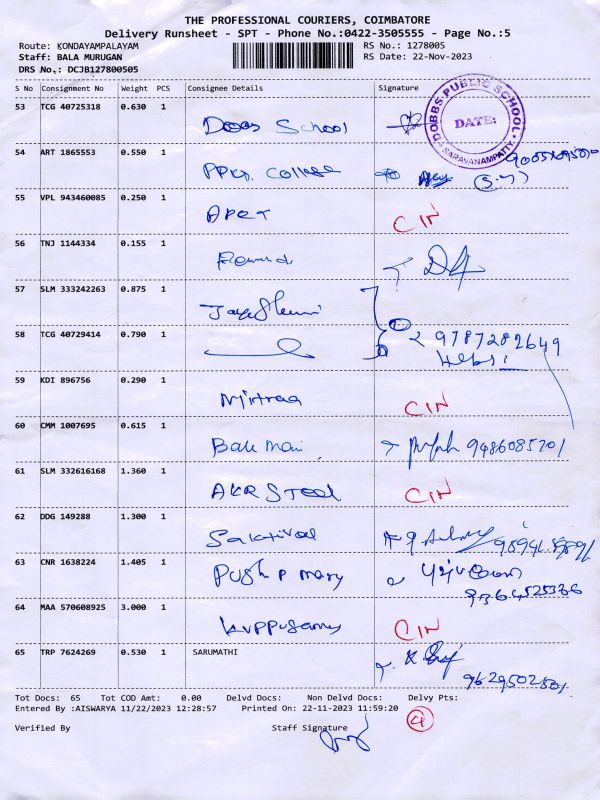 THE PROFESSIONAL COURIERS, COIMBATORE
Delivery Runsheet - SPT - Phone No.:0422-3505555 - Page No.:5
Route: KONDAYAMPALAYAM RS No.: 1278005
Staff: BALA MURUGAN RS Date: 22-Nov-2023
DRS No.: DCJB127800505
S No AWB No Weight PCS Consignee Details Signature
53 TCG 40725318 0.630 1
Dobbs School
DOBBS PUBLIC SCHOOL
DATE:
SARAVANAMPATTY
54 ART 1865553 0.550 1
PPG College
55 VPL 943460085 0.250 1
Apex CIN
56 TNJ 1144334 0.155 1
57 SLM 333242263 0.875 1
58 TCG 40729414 0.790 1
9787282649
59 KDI 896756 0.290 1
Mirtraa CIN
60 CMM 1007695 0.615 1
Bale Mani 9486085701
61 SLM 332616168 1.360 1
AKR Steel CIN
62 DDG 149288 1.300 1
Saktivel
63 CNR 1638224 1.405 1
Pushpa mary
9364525366
64 MAA 570608925 3.000 1
Kuppusamy CIN
65 TRP 7624269 0.530 1 SARUMATHI
9629502501
Tot Docs: 65 Tot COD Amt: 0.00 Delvd Docs: Non Delvd Docs: Delvy Pts:
Entered By :AISWARYA 11/22/2023 12:28:57 Printed On: 22-11-2023 11:59:20
4
Verified By Staff Signature